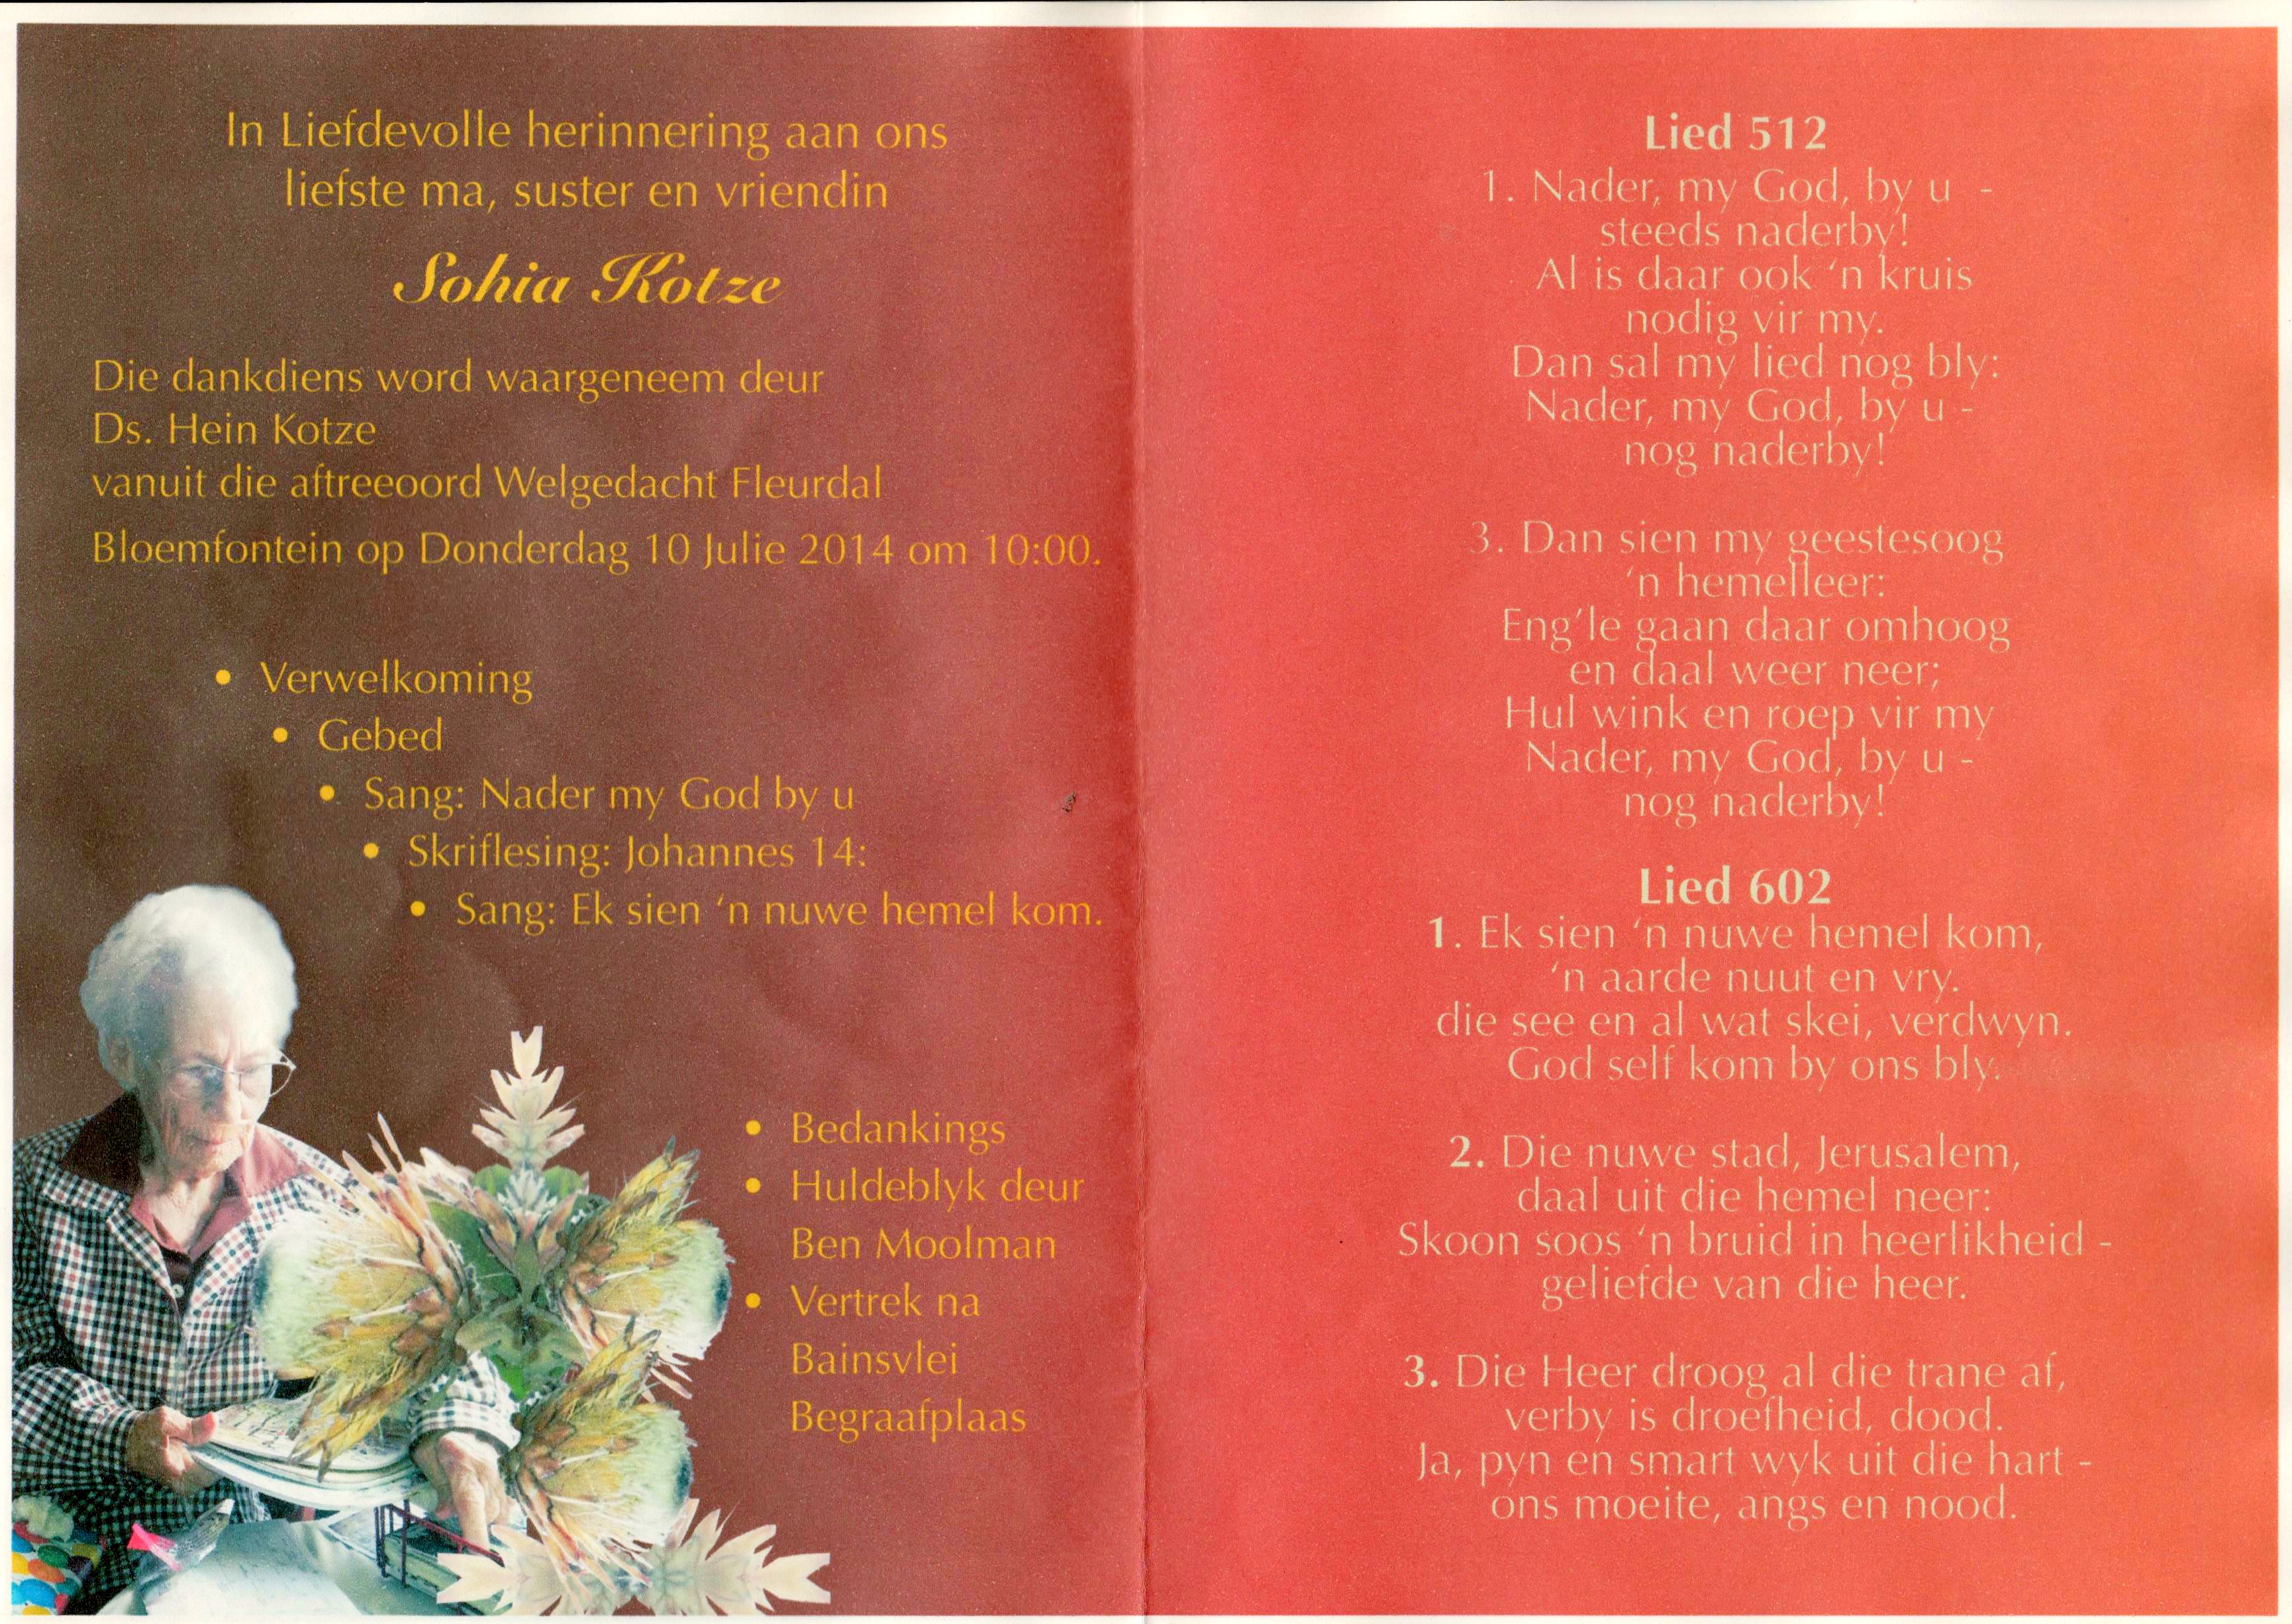 In Liefdevolle herinnering aan ons
liefste ma, suster en vriendin
Sohia Kotze
Die dankdiens word waargeneem deur
Ds. Hein Kotze
vanuit die aftreeoord Welgedacht Fleurdal
Bloemfontein op Donderdag 10 Julie 2014 om 10:00.
• Verwelkoming
• Gebed
• Sang: Nader my God by u
• Skriflesing: Johannes 14:
• Sang: Ek sien ‘n nuwe hemel kom.
• Bedankings
• Huldeblyk deur
Ben Moolman
• Vertrek na
Bainsvlei
Begraafplaas
Lied 512
1. Nader, my God, by u -
steeds naderby!
Al is daar ook ‘n kruis
nodig vir my.
Dan sal my lied nog bly:
Nader, my God, by u -
nog naderby!
3. Dan sien my geestesoog
‘n hemelleer:
Eng’le gaan daar omhoog
en daal weer neer;
Hul wink en roep vir my
Nader, my God, by u -
nog naderby!
Lied 602
1. Ek sien ‘n nuwe hemel kom,
‘n aarde nuut en vry.
die see en al wat skei, verdwyn.
God self kom by ons bly.
2. Die nuwe stad, Jerusalem,
daal uit die hemel neer:
Skoon soos ‘n bruid in heerlikheid -
geliefde van die heer.
3. Die Heer droog al die trane af,
verby is droefheid, dood.
Ja, pyn en smart wyk uit die hart -
ons moeite, angs en nood.